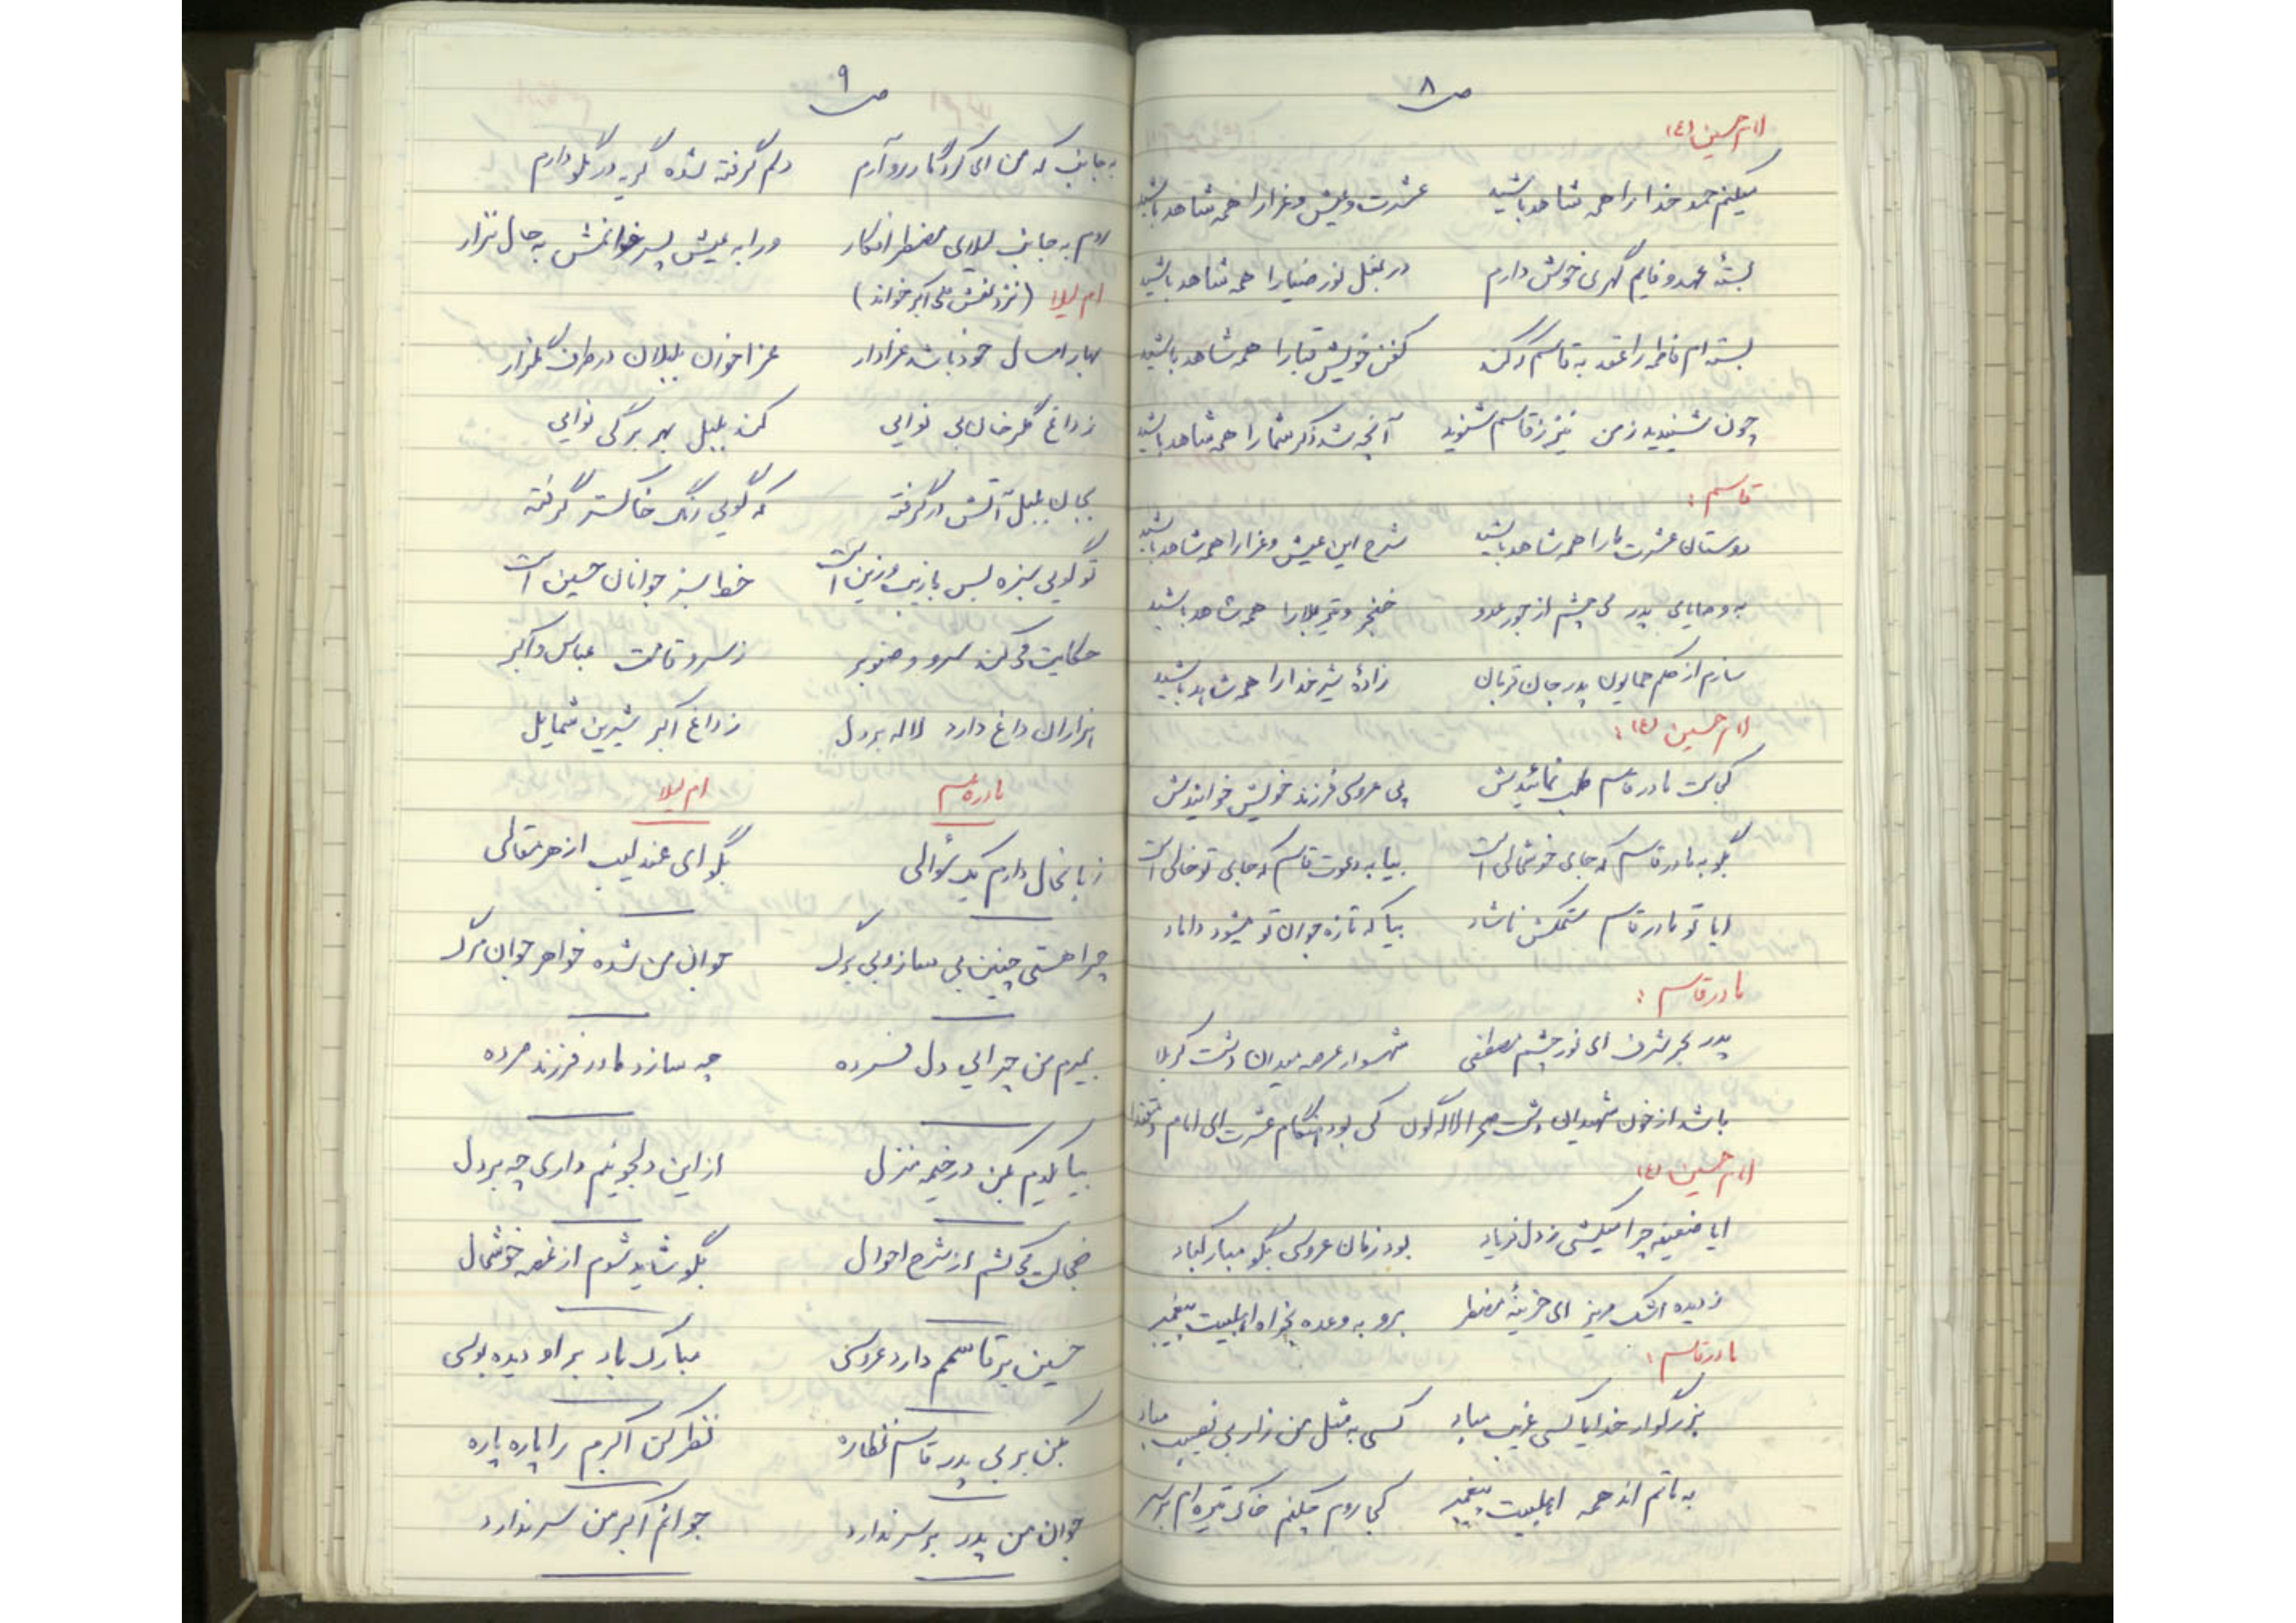 ص ۸
امام حسین (ع)
میکنم حمد خدا را همه شاهد باشید عشرت و عیش و عزا را همه شاهد باشید
بستهٔ عهد و فایم گهری خویش دارم در بغل نور ضیا را همه شاهد باشید
بسته‌ام فاطمه را عقد به قاسم کفن خویش قبا را همه شاهد باشید
چون شنیدید ز من نیز ز قاسم شنوید آنچه شد ذکر شما را همه شاهد باشید
قاسم :
دوستان عشرت ما را همه شاهد باشید شرح این عیش و عزا را همه شاهد باشید
به وصایای پدر می چشم از جور عدو خنجر و تیر بلا را همه شاهد باشید
سازم از حکم همایون پدر جان قربان زادهٔ شیر خدا را همه شاهد باشید
امام حسین (ع) :
کجاست مادر قاسم طلب نمائیدش پی عروسی فرزند خویش خوانیدش
بگو به مادر قاسم که جای خوشحالی است بیا به دعوت قاسم که جای تو خالی است
ایا تو مادر قاسم ستمکش ناشاد بیا که تازه جوان تو میشود داماد
مادر قاسم :
پدر بحر شرف ای نور چشم مصطفی شهسوار عرصه میدان دشت کربلا
باشد از خون شهیدان دشت صحرا لاله گون کی بود هنگام عشرت ای امام و مقتدا
امام حسین (ع)
ایا ضعیفه چرا میکشی ز دل فریاد بود زمان عروسی بگو مبارکباد
ز دیده اشک مریز ای حزینهٔ مضطر برو به وعده بخواه اهلبیت پیغمبر
مادر قاسم :
بزرگوار خدایا کسی غریب مباد کسی به مثل من زار بی نصیب مباد
به ماتم اند همه اهلبیت پیغمبر کجا روم چکنم خاک تیره ام بر سر
ص ۹
به جانب که من ای کردگار رو آرم دلم گرفته شده گریه در گلو دارم
روم به جانب لیلای مضطر افکار ورا به عیش پسر خوانمش به حال نزار
ام لیلا (نزد نعش علی اکبر خواند)
بهار امسال خود باشد عزادار عزا خوان بلبلان در طرف گلزار
ز داغ گلرخان بی نوایی کند بلبل بهر برگی نوایی
بجان بلبل آتش در گرفته که گویی رنگ خاکستر گرفته
تو گویی سبزه بس با زیب و زین است خط سبز جوانان حسین است
حکایت می کند سرو و صنوبر ز سرو قامت عباس و اکبر
هزاران داغ دارد لاله بر دل ز داغ اکبر شیرین شمایل
مادر قاسم ام لیلا
زبانحال دارم یک سؤالی بگو ای عندلیب از هر مقالی
چرا هستی چنین بی ساز و بی برگ جوان من شده خواهر جوان مرگ
بمیرم من چرایی دل فسرده چه سازد مادر فرزند مرده
بیا یکدم بکن در خیمه منزل از این دلجوئیم داری چه بر دل
خجالت می کشم از شرح احوال بگو شاید شوم از غصه خوشحال
حسین بر قاسمم دارد عروسی مبارک باد بر او دیده بوسی
بکن بر بی پدر قاسم نظاره نظر کن اکبرم را پاره پاره
جوان من پدر بر سر ندارد جوانم اکبر من سر ندارد